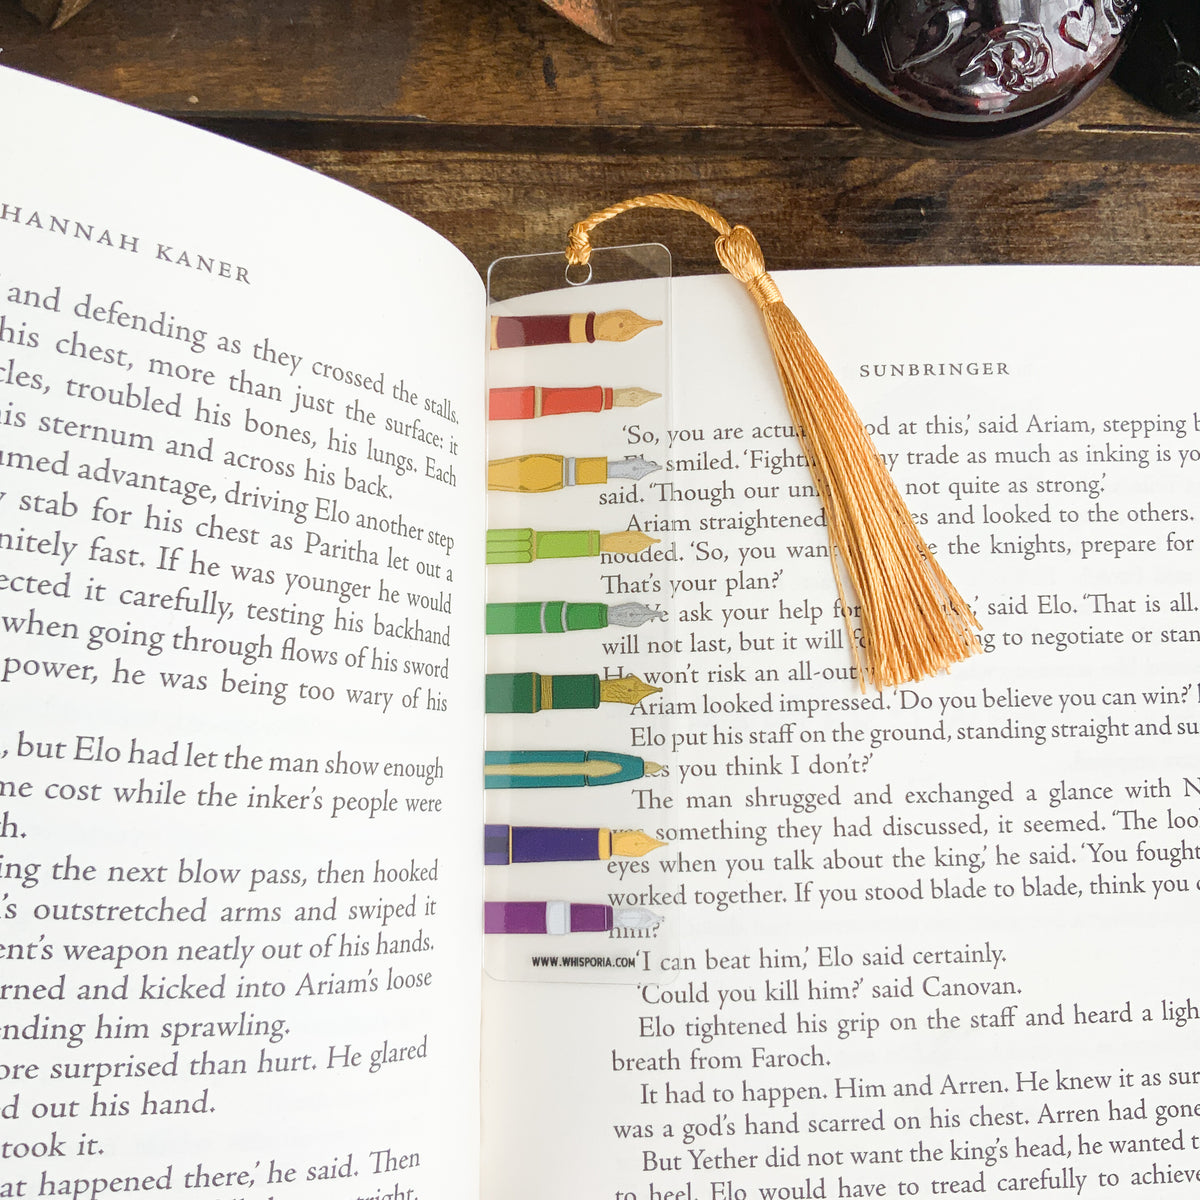 HANNAH KANER
and defending as they crossed the stalls.
his chest, more than just the surface: it
troubled his bones, his lungs. Each
his sternum and across his back.
advantage, driving Elo another step
stab for his chest as Paritha let out a
fast. If he was younger he would
it carefully, testing his backhand
when going through flows of his sword
power, he was being too wary of his
but Elo had let the man show enough
cost while the inker's people were
the next blow pass, then hooked
outstretched arms and swiped it
weapon neatly out of his hands.
and kicked into Ariam's loose
him sprawling.
surprised than hurt. He glared
out his hand.
took it.
happened there,' he said. Then
SUNBRINGER
'So, you are at this,' said Ariam, stepping
smiled. trade as much as inking is
said. 'Though our not quite as strong.'
Ariam straightened and looked to the others.
nodded. 'So, you the knights, prepare for
That's your plan?'
ask your help for said Elo. 'That is all.
will not last, but it will to negotiate or
He won't risk an all-out
Ariam looked impressed. 'Do you believe you can win?'
Elo put his staff on the ground, standing straight and
you think I don't?'
The man shrugged and exchanged a glance with
something they had discussed, it seemed. 'The
eyes when you talk about the king,' he said. 'You fought
worked together. If you stood blade to blade, think you
him?'
WWW.WHISPORIA.COM
'I can beat him,' Elo said certainly.
'Could you kill him?' said Canovan.
Elo tightened his grip on the staff and heard a
breath from Faroch.
It had to happen. Him and Arren. He knew it as
was a god's hand scarred on his chest. Arren had
But Yether did not want the king's head, he wanted
to heel. Elo would have to tread carefully to